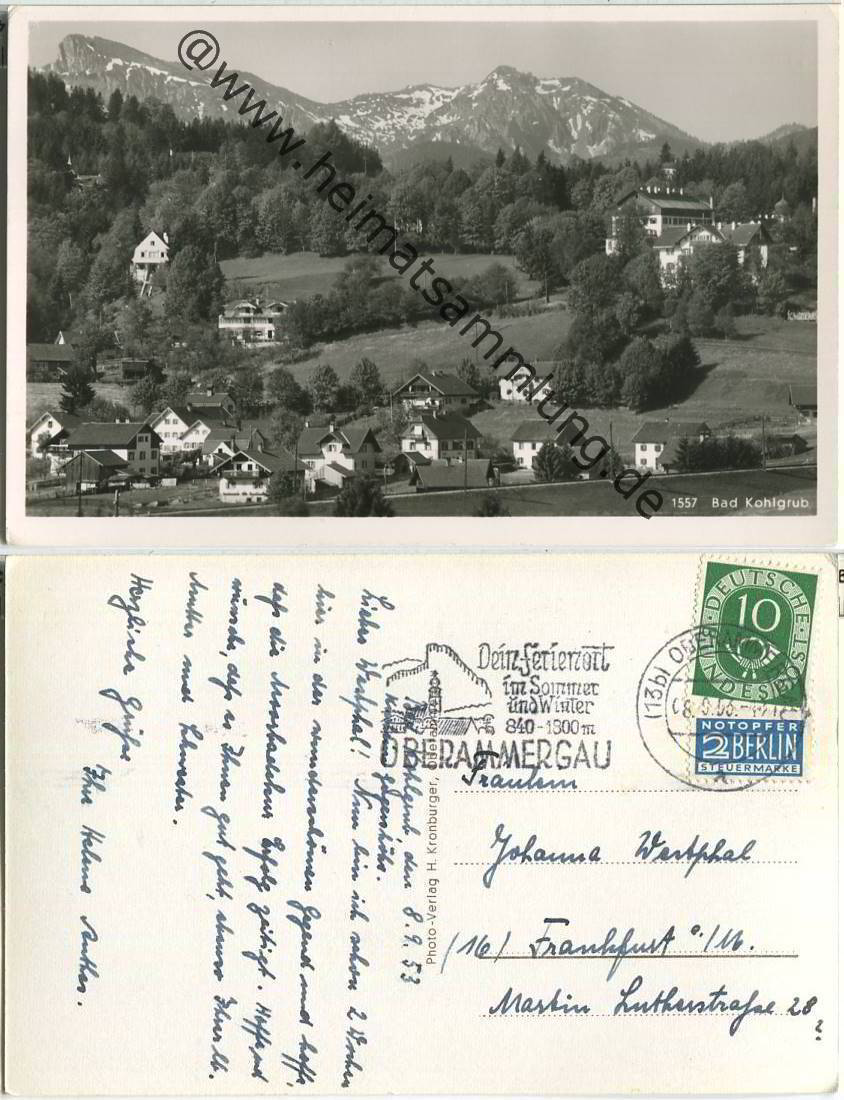 @www.heimatsammlung.de
1557 Bad Kohlgrub
Bad Kohlgrub, den 8.9.53
Liebes Westphal! Nun bin ich schon 2 Wochen
hier in der wunderschönen Gegend und hoffe,
daß die Moorbadekur Erfolg zeitigt. Hoffend
wünsche, daß es Ihnen gut geht, ebenso Ihrer lb.
Mutter und Schwester.
Herzliche Grüße
Ihre Helene
Photo-Verlag H. Kronburger, Oberammergau
Dein Ferienort
im Sommer
und Winter
840-1300m
OBERAMMERGAU
(13b) OBERAMMERGAU
DEUTSCHE BUNDESPOST
10
NOTOPFER
2 BERLIN
STEUERMARKE
Fräulein
Johanna Westphal
(16) Frankfurt a/M.
Martin Lutherstraße 28